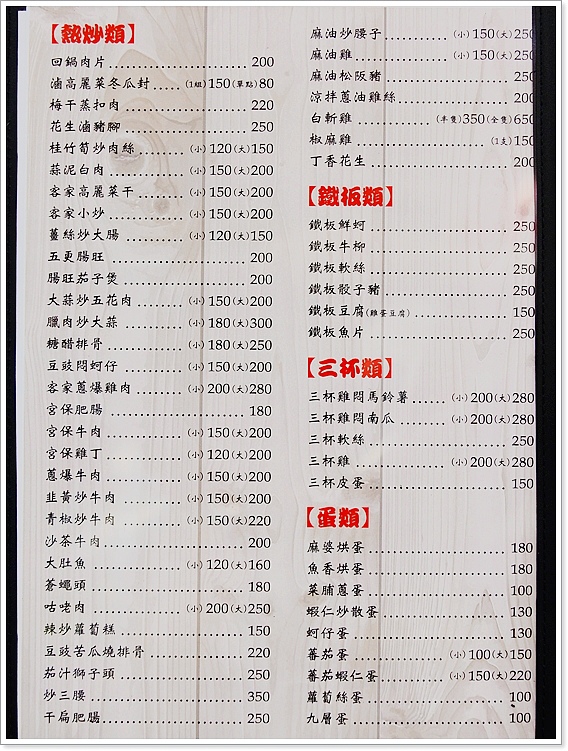 【熱炒類】
回鍋肉片 200
滷高麗菜冬瓜封 (1組)150(單點)80
梅干蒸扣肉 220
花生滷豬腳 250
桂竹筍炒肉絲 (小)120(大)150
蒜泥白肉 (小)150(大)200
客家高麗菜干 (小)150(大)200
客家小炒 (小)150(大)200
薑絲炒大腸 (小)120(大)150
五更腸旺 200
腸旺茄子煲 200
大蒜炒五花肉 (小)150(大)200
臘肉炒大蒜 (小)180(大)300
糖醋排骨 (小)180(大)250
豆豉悶蚵仔 (小)150(大)200
客家蔥爆雞肉 (小)200(大)280
宮保肥腸 180
宮保牛肉 (小)150(大)200
宮保雞丁 (小)120(大)200
蔥爆牛肉 (小)150(大)200
韭黃炒牛肉 (小)150(大)200
青椒炒牛肉 (小)150(大)220
沙茶牛肉 200
大肚魚 (小)120(大)160
蒼蠅頭 180
咕老肉 (小)200(大)250
辣炒蘿蔔糕 150
豆豉苦瓜燒排骨 220
茄汁獅子頭 250
炒三腰 350
干扁肥腸 250
麻油炒腰子 (小)150(大)250
麻油雞 (小)150(大)250
麻油松阪豬 250
涼拌蔥油雞絲 200
白斬雞 (半隻)350(全隻)650
椒麻雞 (1支)150
丁香花生 200
【鐵板類】
鐵板鮮蚵 250
鐵板牛柳 250
鐵板軟絲 250
鐵板骰子豬 250
鐵板豆腐(雞蛋豆腐) 150
鐵板魚片 250
【三杯類】
三杯雞悶馬鈴薯 (小)200(大)280
三杯雞悶南瓜 (小)200(大)280
三杯軟絲 250
三杯雞 (小)200(大)280
三杯皮蛋 150
【蛋類】
麻婆烘蛋 180
魚香烘蛋 180
菜脯蔥蛋 100
蝦仁炒散蛋 130
蚵仔蛋 130
蕃茄蛋 (小)100(大)150
蕃茄蝦仁蛋 (小)150(大)220
蘿蔔絲蛋 100
九層蛋 100